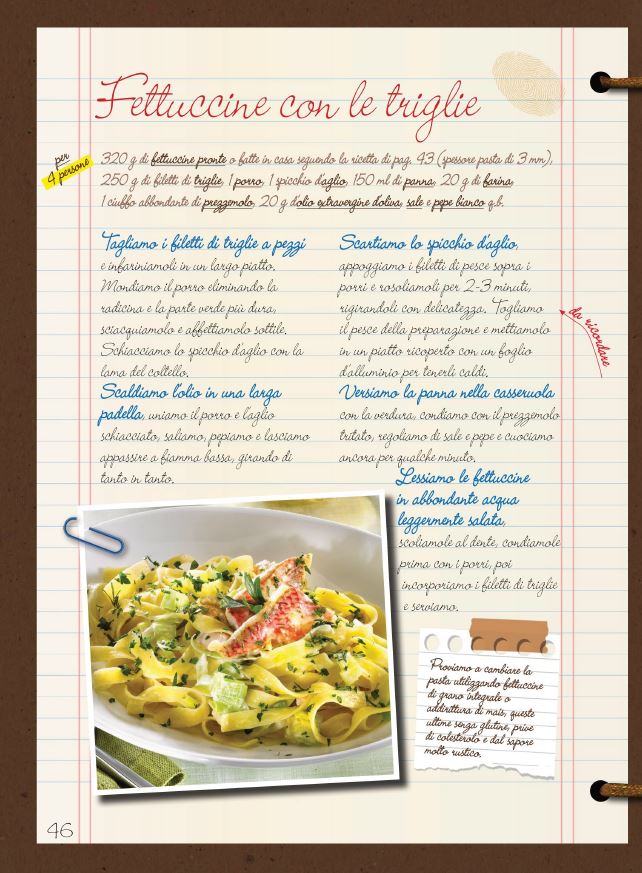 Fettuccine con le triglie
per
4 persone
320 g di fettuccine pronte o fatte in casa seguendo la ricetta di pag. 43 (spessore pasta di 3 mm),
250 g di filetti di triglie, 1 porro, 1 spicchio d'aglio, 150 ml di panna, 20 g di farina,
1 ciuffo abbondante di prezzemolo, 20 g d'olio extravergine d'oliva, sale e pepe bianco q.b.
Tagliamo i filetti di triglie a pezzi
e infariniamoli in un largo piatto.
Mondiamo il porro eliminando la
radicina e la parte verde più dura,
sciacquiamolo e affettiamolo sottile.
Schiacciamo lo spicchio d'aglio con la
lama del coltello.
Scaldiamo l'olio in una larga
padella, uniamo il porro e l'aglio
schiacciato, saliamo, pepiamo e lasciamo
appassire a fiamma bassa, girando di
tanto in tanto.
Scartiamo lo spicchio d'aglio,
appoggiamo i filetti di pesce sopra i
porri e rosoliamoli per 2-3 minuti,
rigirandoli con delicatezza. Togliamo
il pesce della preparazione e mettiamolo
in un piatto ricoperto con un foglio
d'alluminio per tenerli caldi.
da ricordare
Versiamo la panna nella casseruola
con la verdura, condiamo con il prezzemolo
tritato, regoliamo di sale e pepe e cuociamo
ancora per qualche minuto.
Lessiamo le fettuccine
in abbondante acqua
leggermente salata,
scoliamole al dente, condiamole
prima con i porri, poi
incorporiamo i filetti di triglie
e serviamo.
Proviamo a cambiare la
pasta utilizzando fettuccine
di grano integrale o
addirittura di mais, queste
ultime senza glutine, prive
di colesterolo e dal sapore
molto rustico.
46